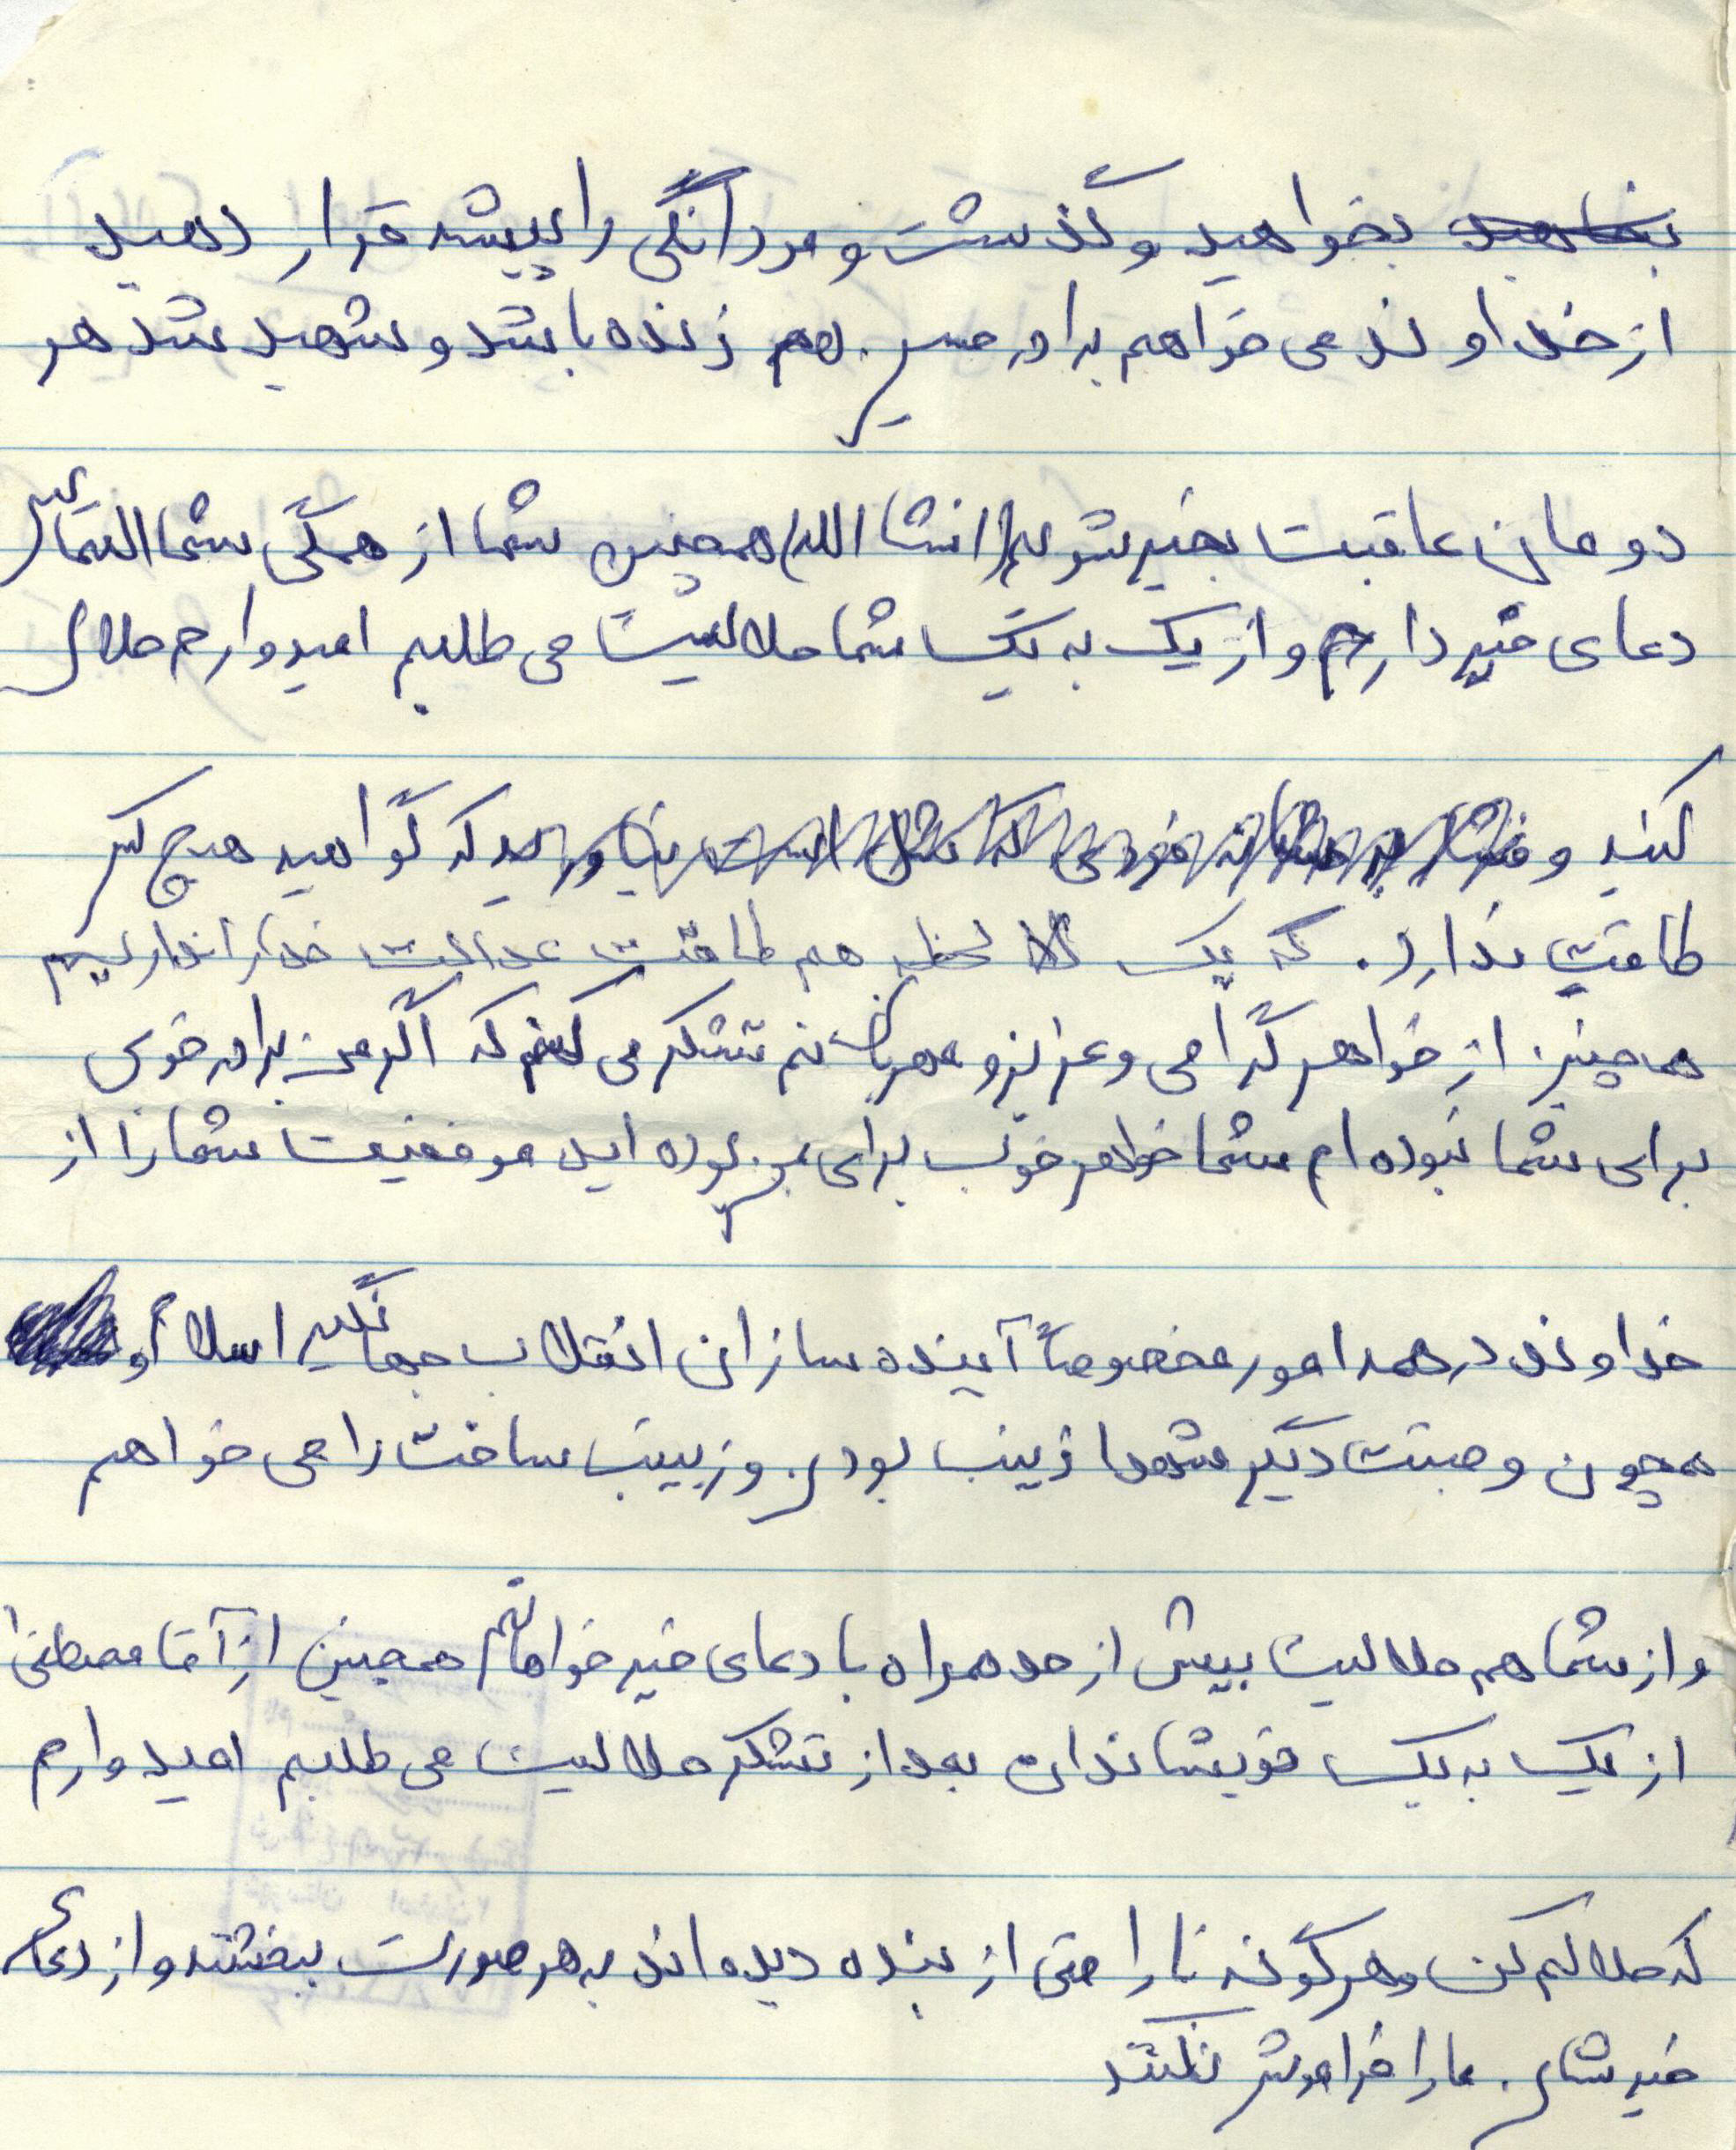 بخواهید و گذشت و مردانگی را پیشه قرار دهید
از خداوند می خواهم برادر حسن هم زنده باشد و شهید شد هر
دومان عاقبت بخیر شویم (انشا الله) همچنین شما از همگی شما التماس
دعای خیر دارم و از یک به یک شما حلالیت می طلبم امیدوارم حلال
کنید و که گواهید هیچ کس
طاقت ندارد. که یک لحظه هم طاقت عدالت خدا را نداریم
همچنین از خواهر گرامی و عزیز و مهربانم تشکر می کنم که اگر من برادر خوبی
برای شما نبوده ام شما خواهر خوب برای من بوده اید موفقیت شما را از
خداوند در همه امور مخصوصاً آینده سازان انقلاب جهانگیر اسلام و
همچون وصیت دیگر شهدا زینب بودن و زینب ساخت را می خواهم
و از شما هم حلالیت بیش از حد همراه با دعای خیر خواهانم همچنین از آقا مصطفی
از یک به یک خویشاندان بعد از تشکر حلالیت می طلبم امیدوارم
که حلالم کن و هرگونه ناراحتی از بنده دیده اند به هر صورت ببخشند و از دعای
خیرشان ما را فراموش نکنند